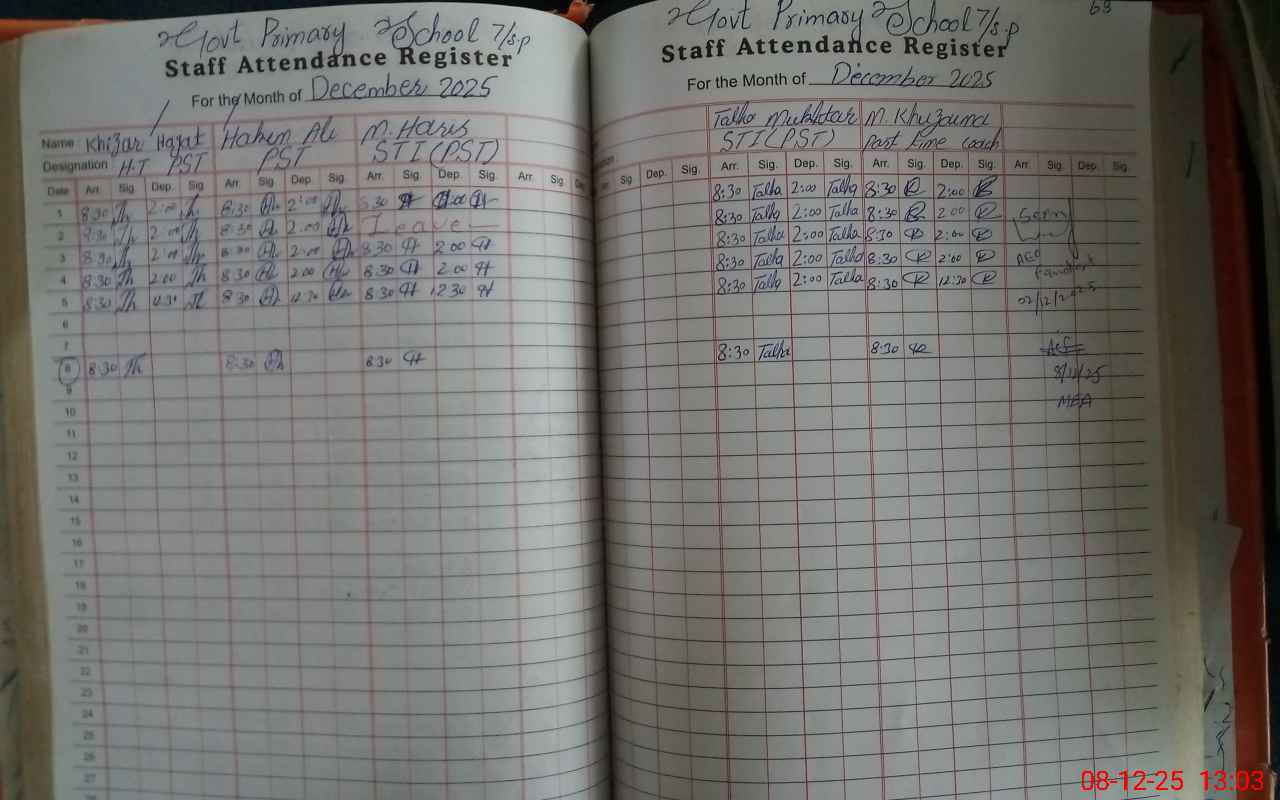 Govt Primary School 7/s.p
Staff Attendance Register
For the Month of December 2025
Name Khizar Hayat Hakim Ali M. Haris
Designation H.T PST PST STI (PST)
Date Arr. Sig. Dep. Sig. Arr. Sig. Dep. Sig. Arr. Sig. Dep. Sig. Arr. Sig.
1 8:30 2:00 8:30 2:00 8:30 2:00
2 8:30 2:00 8:30 2:00 Leave
3 8:30 2:00 8:30 2:00 8:30 2:00
4 8:30 2:00 8:30 2:00 8:30 2:00
5 8:30 12:30 8:30 12:30 8:30 12:30
6
7
8 8:30 8:30 8:30
9
10
11
12
13
14
15
16
17
18
19
20
21
22
23
24
25
26
27
63
Govt Primary School 7/s.p
Staff Attendance Register
For the Month of December 2025
Talha Mukhtar M. Khuzaima
STI (PST) Part time coach
Sig. Dep. Sig. Arr. Sig. Dep. Sig. Arr. Sig. Dep. Sig. Arr. Sig. Dep. Sig.
8:30 Talha 2:00 Talha 8:30 2:00
8:30 Talha 2:00 Talha 8:30 2:00
8:30 Talha 2:00 Talha 8:30 2:00
8:30 Talha 2:00 Talha 8:30 2:00 AEO
8:30 Talha 2:00 Talha 8:30 12:30
02/12/2025
8:30 Talha 8:30
MEA
08-12-25 13:03